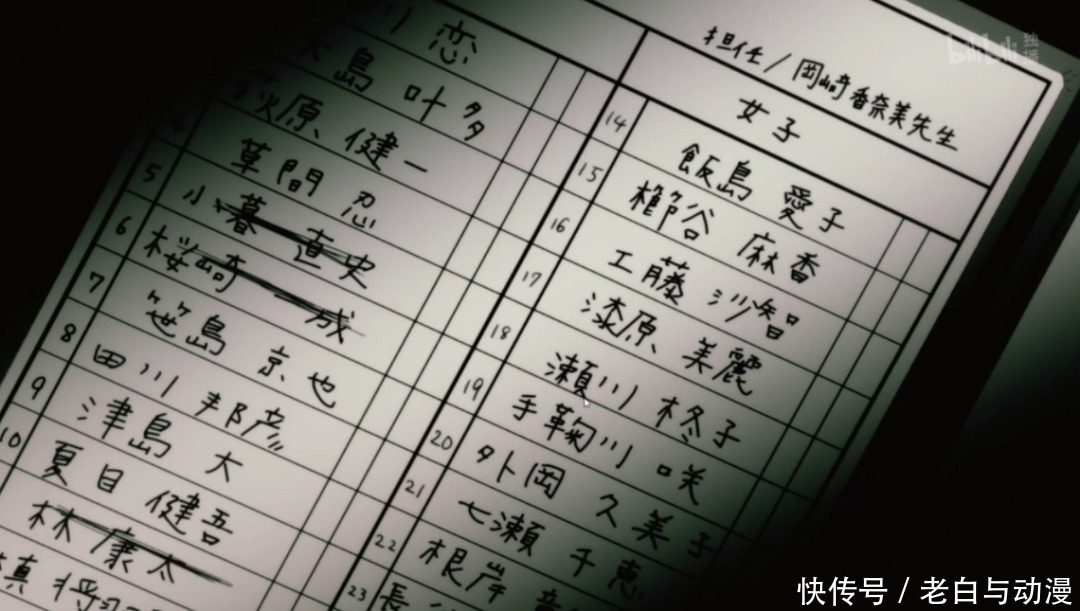 担任/岡崎香奈美先生
女子
川 恋
大島 叶多
荻原 健一
4 草間 忍
5 小暮 直史
6 桜崎 一成
7 笹島 京也
8 田川 邦彦
9 津島 大
10 夏目 健吾
林 康太
真 将
14 飯島 愛子
15 櫛谷 麻香
16 工藤 沙智
17 漆原 美麗
18 瀬川 柊子
19 手鞠川 咲
20 外岡 久美子
21 七瀬 千恵
22 根岸
23 長
bilibili 独播
快传号 / 老白与动漫